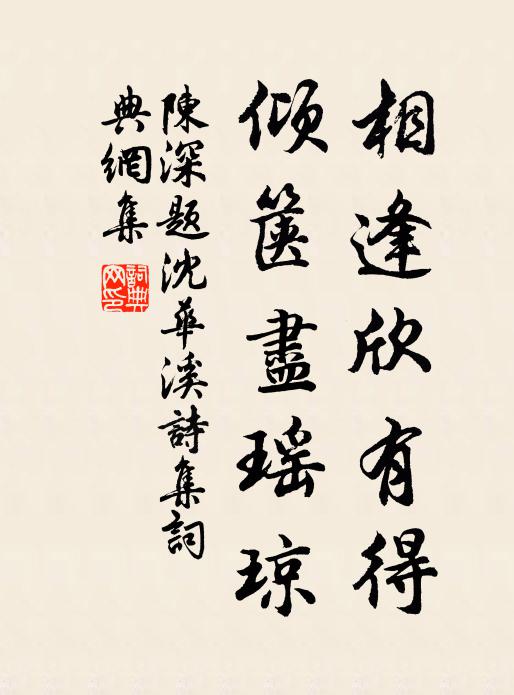 相逢欣有得
傾箧盡瑶琼
陳深题沈華溪詩集詞
典網集
詞典
网印